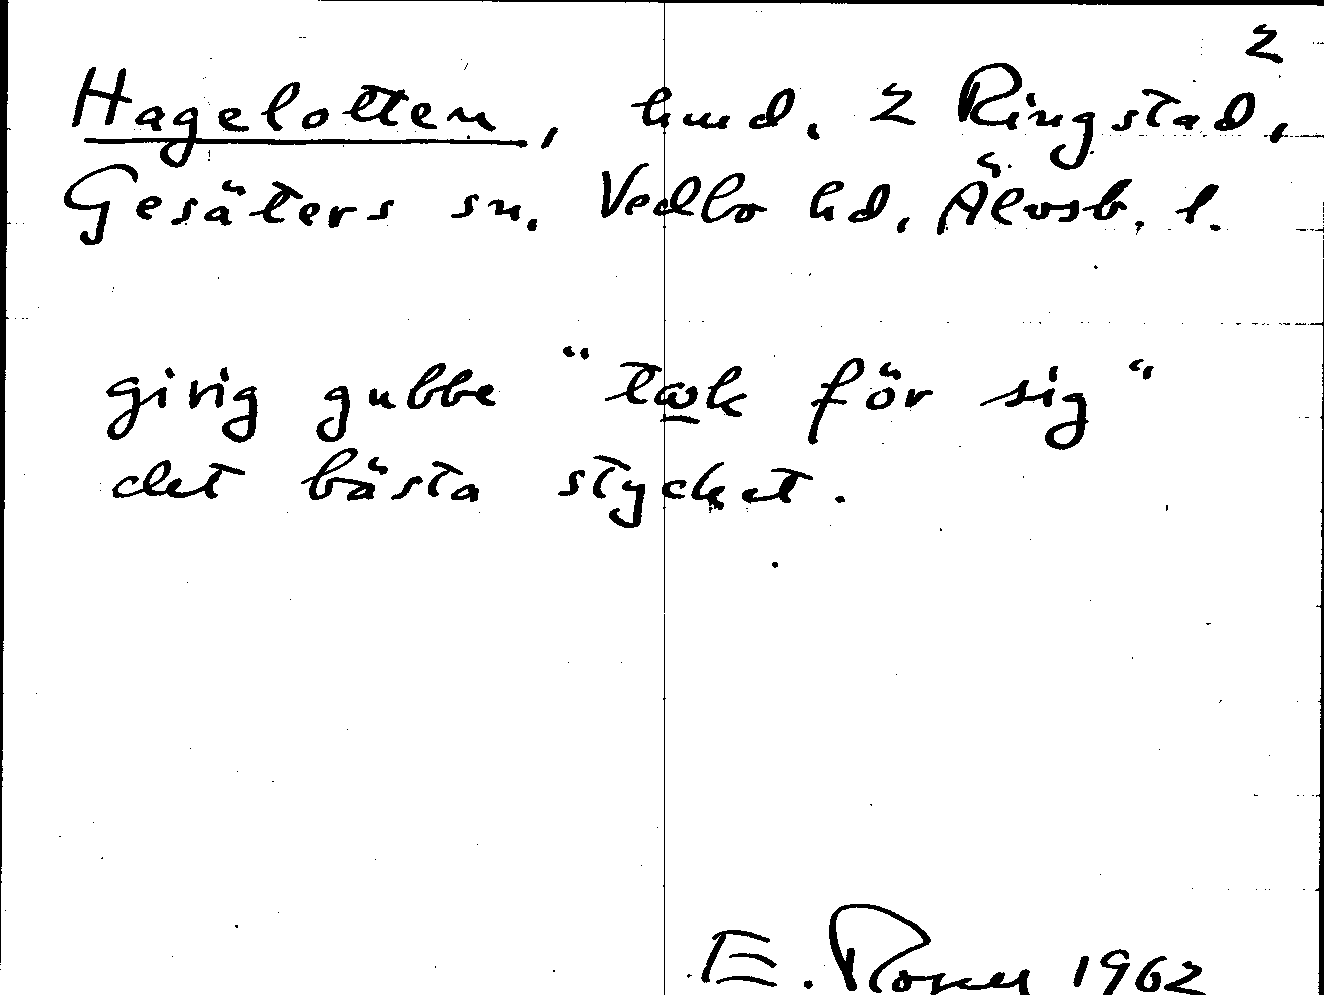 2
Hagelotten, hmd. 2 Ringstad,
Gesäters sn. Vedbo hd. Älvsb. l.
girig gubbe "tœk för sig"
det bästa stycket.
E. 1962